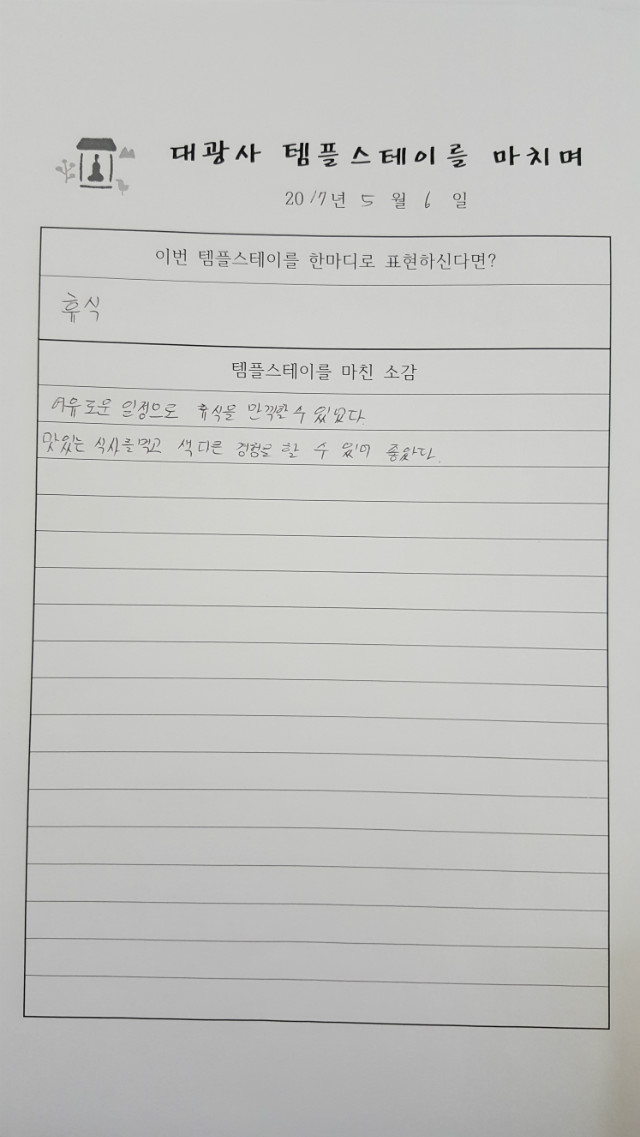 대광사 템플스테이를 마치며
2017년 5 월 6 일
이번 템플스테이를 한마디로 표현하신다면?
휴식
템플스테이를 마친 소감
여유로운 일정으로 휴식을 만끽할 수 있었다.
맛있는 식사를 먹고 색다른 경험을 할 수 있어 좋았다.